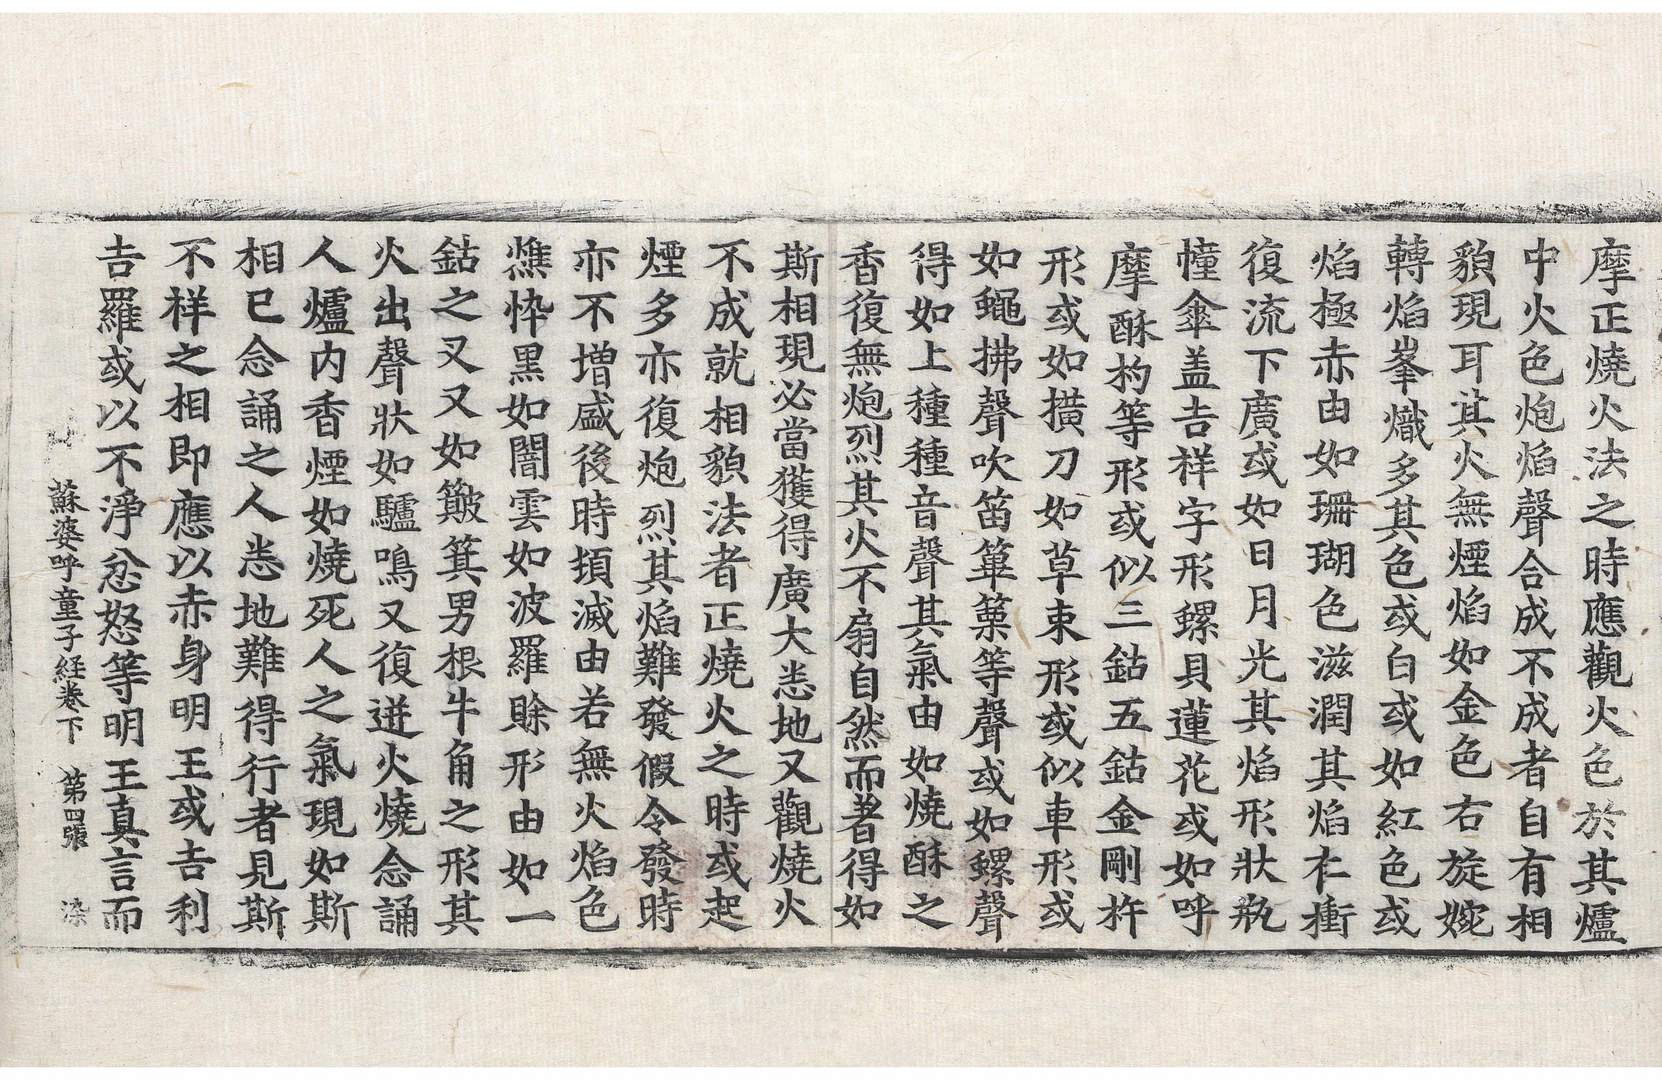 摩正燒火法之時應觀火色於其爐
中火色炮焰聲合成不成者自有相
貌現耳其火無煙焰如金色右旋婉
轉焰峯熾多其色或白或如紅色或
焰極赤由如珊瑚色滋潤其焰上衝
復流下廣或如日月光其焰形狀瓶
幢傘盖吉祥字形螺貝蓮花或如呼
摩酥杓等形或似三鈷五鈷金剛杵
形或如橫刀如草束形或似車形或
如蠅拂聲吹笛篳篥等聲或如螺聲
得如上種種音聲其氣由如燒酥之
香復無炮烈其火不扇自然而著得如
斯相現必當獲得廣大悉地又觀燒火
不成就相貌法者正燒火之時或起
煙多亦復炮烈其焰難發假令發時
亦不增盛後時頓滅由若無火焰色
憔悴黑如闇雲如波羅賒形由如一
鈷之叉又如簸箕男根牛角之形其
火出聲狀如驢鳴又復迸火燒念誦
人爐內香煙如燒死人之氣現如斯
相已念誦之人悉地難得行者見斯
不祥之相即應以赤身明王或吉利
吉羅或以不淨忿怒等明王真言而
蘇婆呼童子経卷下 第四張 染